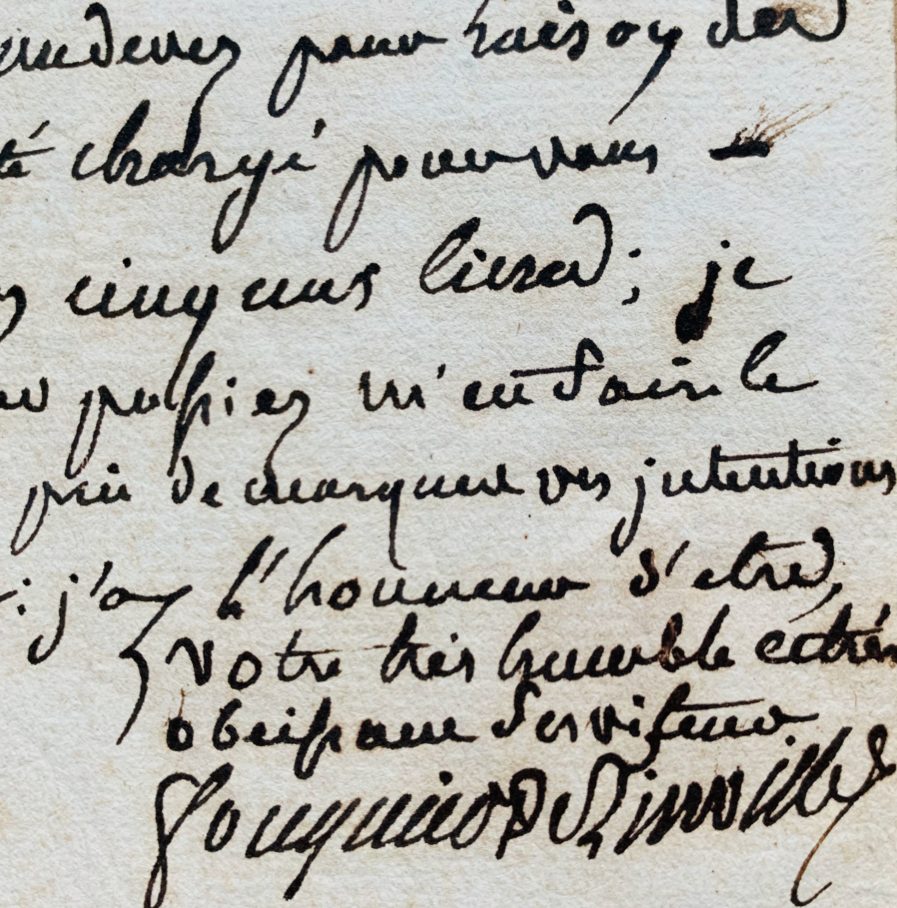 devez pour raison des
té chargé pour vous
cinquans livres; je
pussiez m'en faire le
prie de marquer vos jntentions
: j'ay l'honneur d'etre,
votre très humble et très
obeissant serviteur
fouquier De Tinville